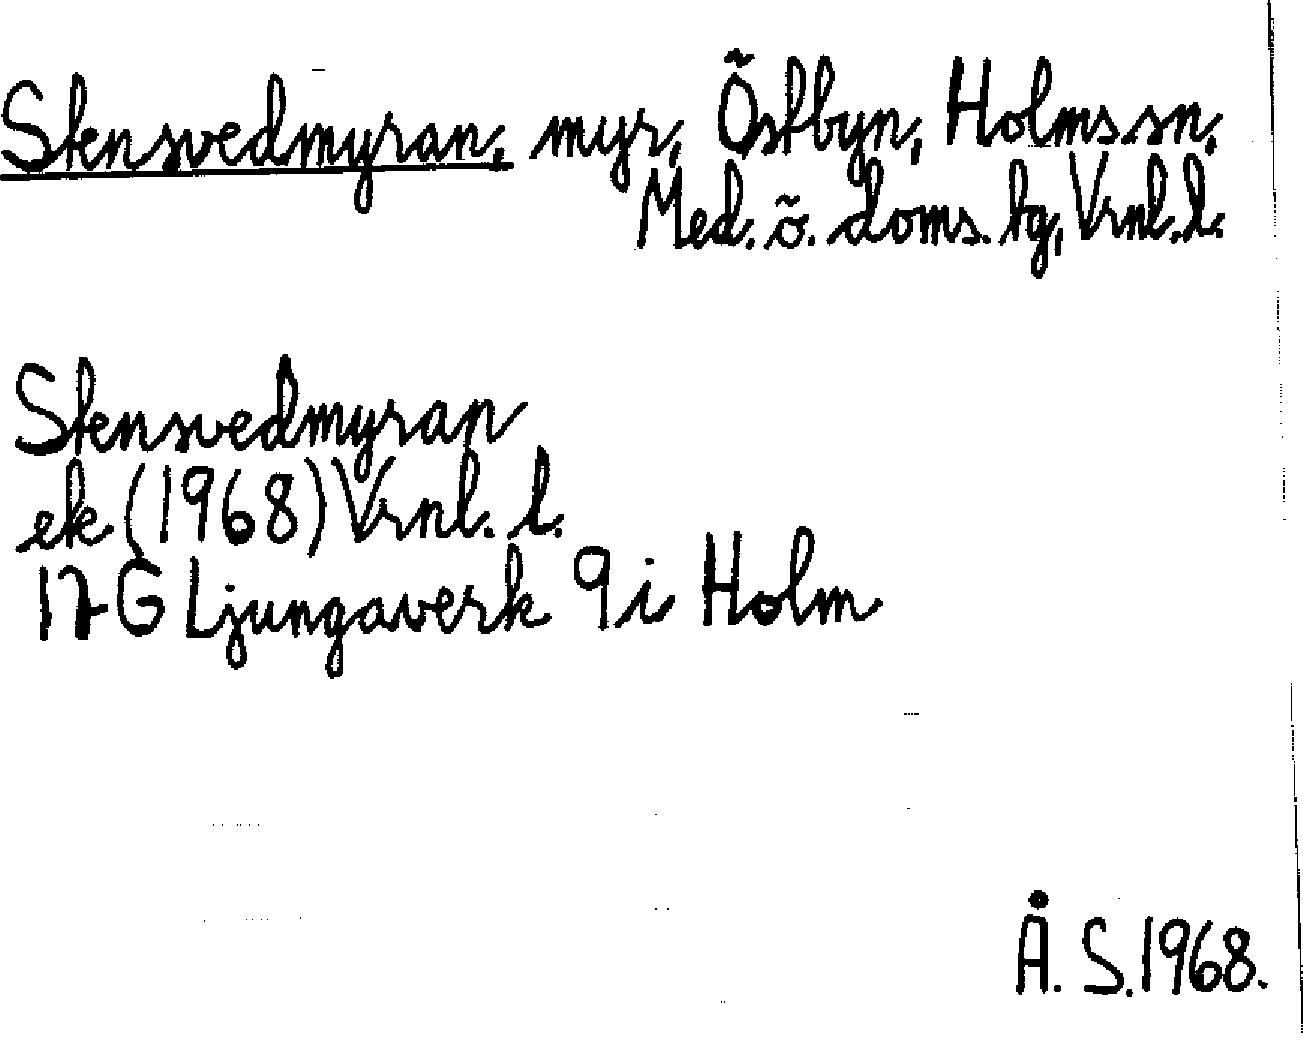 Stensvedmyran, myr, Östbyn, Holms sn,
Med. ö. doms. tg, Vrnl. l.
Stensvedmyran
ek (1968) Vrnl. l.
17 G Ljungaverk 9 i Holm
Å. S. 1968.